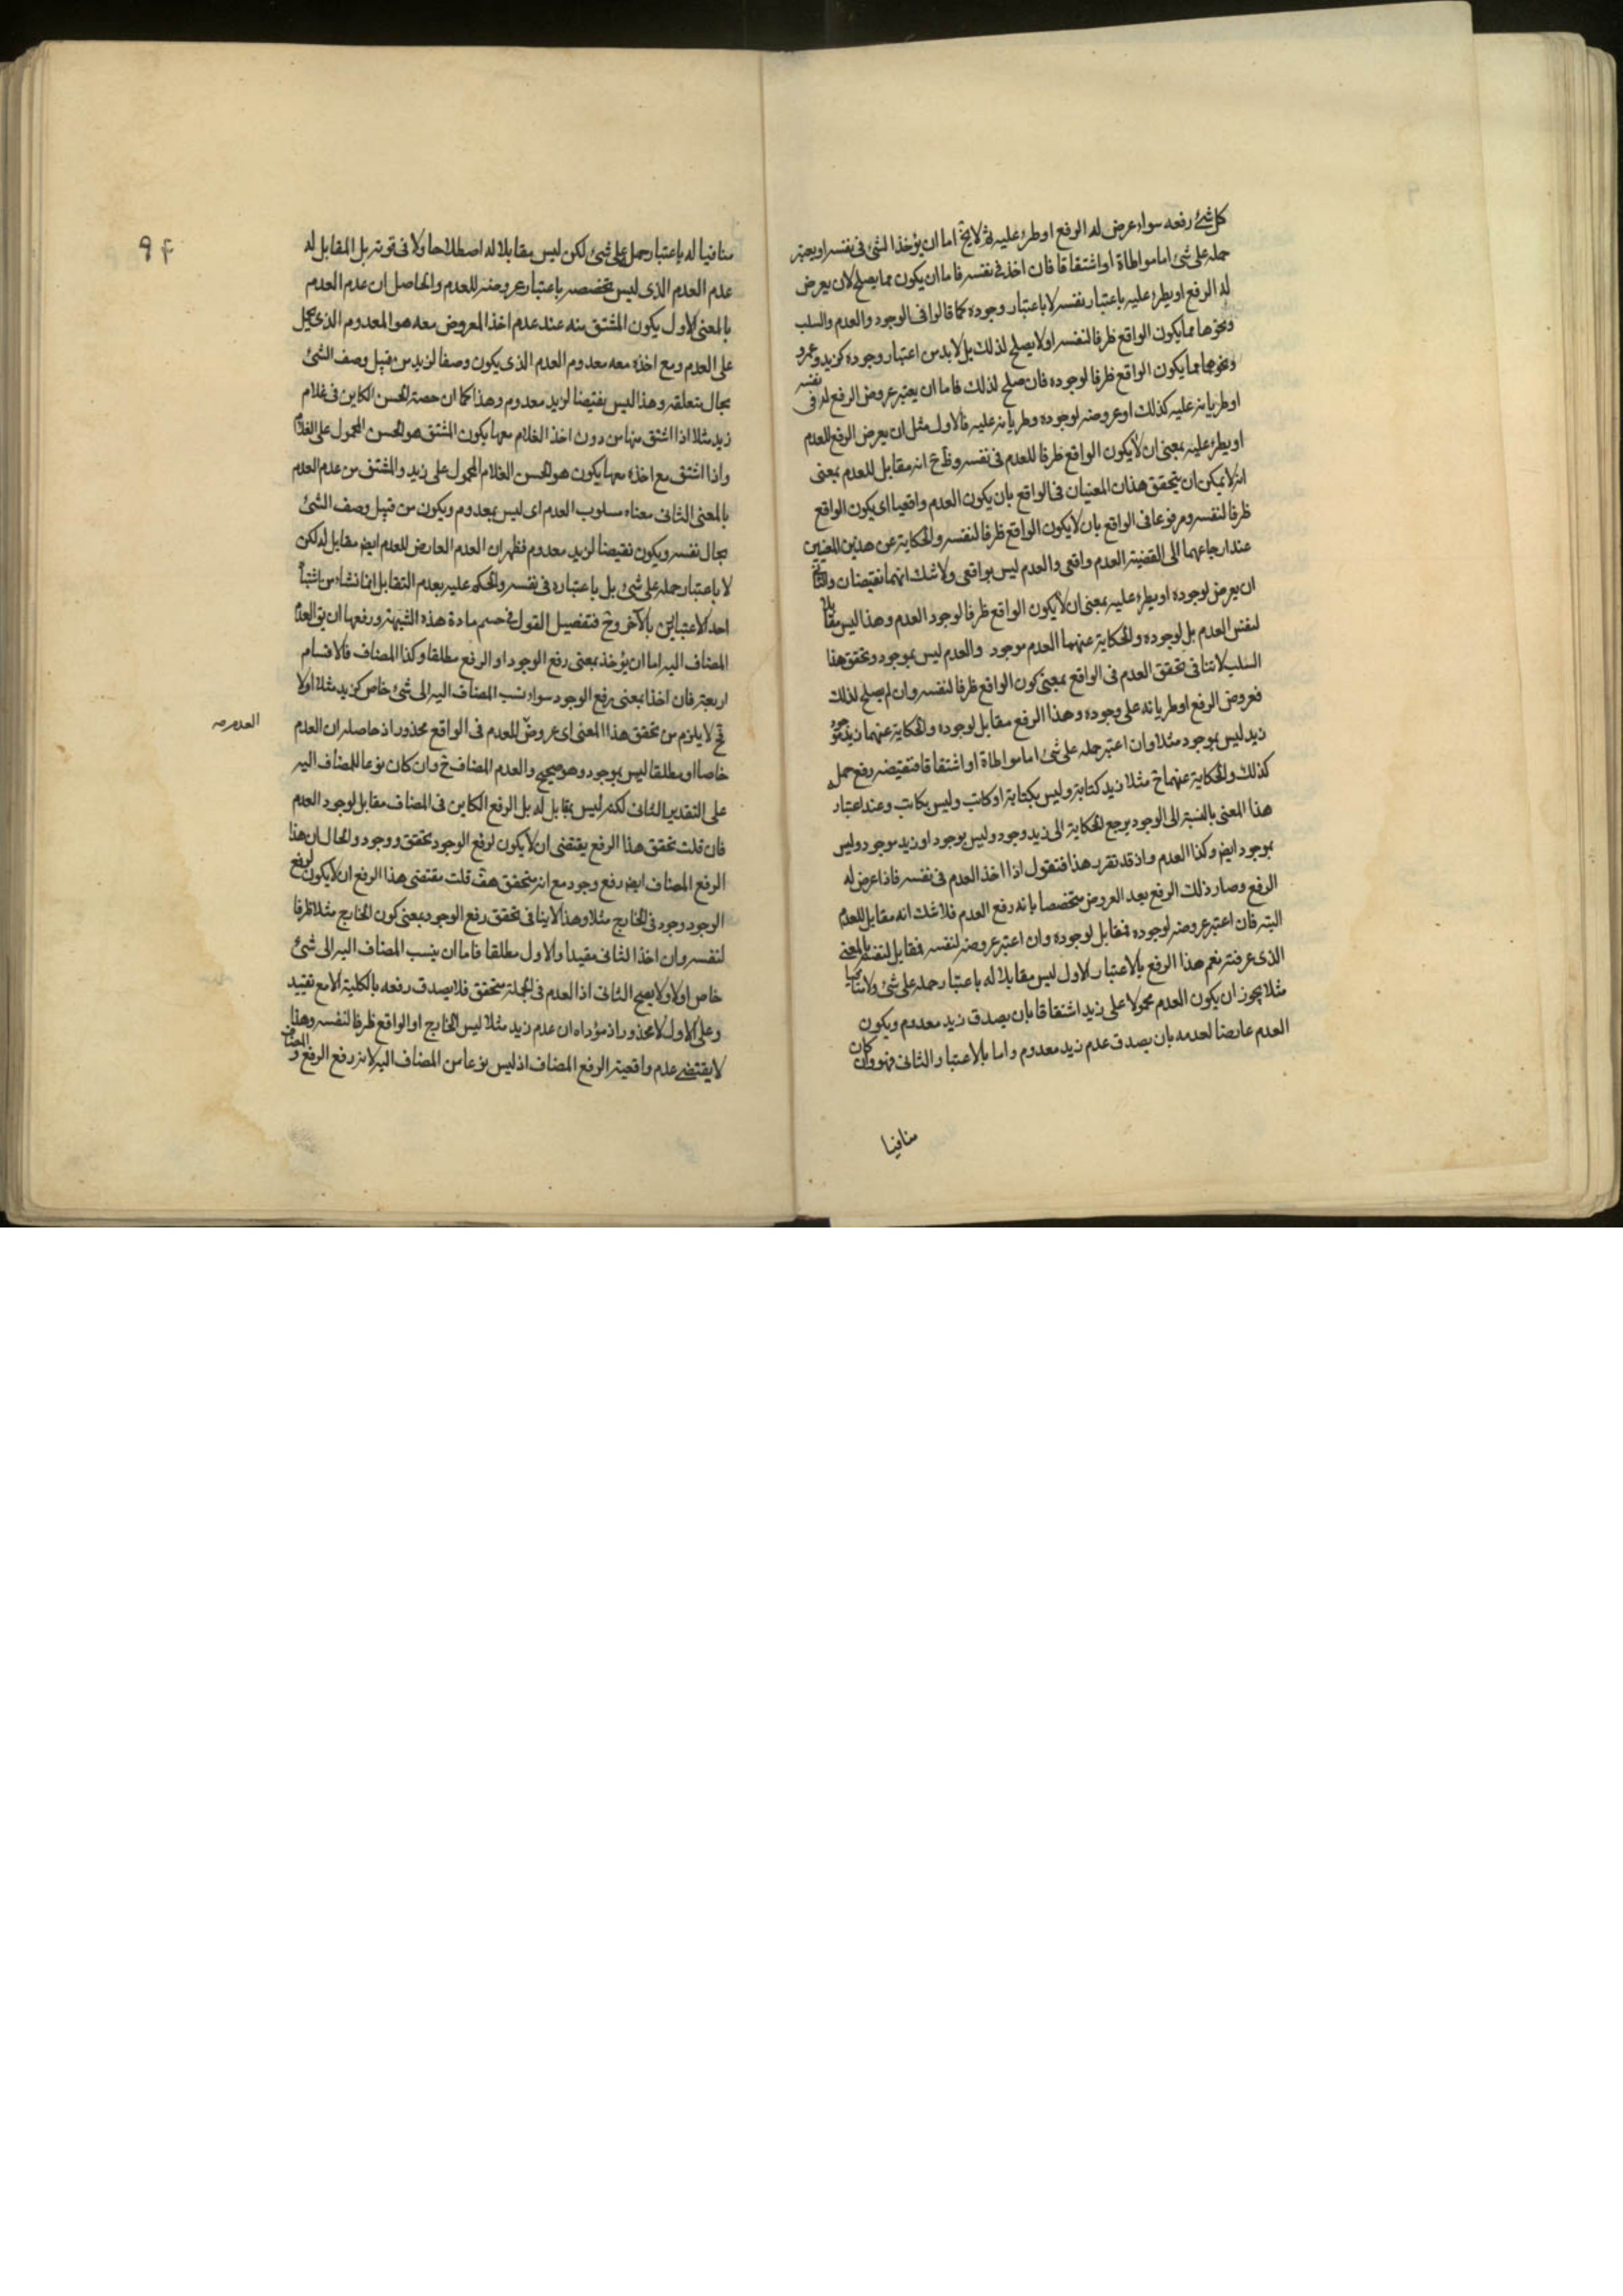 كل شئ رفعه سواء عرض له الرفع او طرء عليه ثم لا يخ اما ان يؤخذ الشئ فى نفسه او يعتبر
حمله على شئ اما مواطاة او اشتقاقا فان اخذ فى نفسه فاما ان يكون مما يصلح لان يعرض
له الرفع او يطرء عليه باعتبار نفسه لا باعتبار وجوده كما قالوا فى الوجود والعدم والسلب
ونحوها مما يكون الواقع ظرفا لنفسه او لا يصلح لذلك بل لا بد من اعتبار وجوده كزيد وعمرو
ونحوهما مما يكون الواقع ظرفا لوجوده فان صلح لذلك فاما ان يعتبر عروض الرفع له فى نفسه
او طريانه عليه كذلك او عروضه لوجوده وطريانه عليه فالاول مثل ان يعرض الرفع للعدم
او يطرء عليه بمعنى ان لا يكون الواقع ظرفا للعدم فى نفسه وظ ح انه مقابل للعدم بمعنى
انه لا يمكن ان يتحقق هذان المعنيان فى الواقع بان يكون العدم واقعيا اى يكون الواقع
ظرفا لنفسه ومرفوعا فى الواقع بان لا يكون الواقع ظرفا لنفسه والحكاية عن هذين المعنيين
عند ارجاعهما الى القضية العدم واقعى والعدم ليس بواقعى ولا شك انهما نقيضان والثانى
ان يعرض لوجوده او يطرء عليه بمعنى ان لا يكون الواقع ظرفا لوجود العدم وهذا ليس مقابلا
لنفس العدم بل لوجوده والحكاية عنهما العدم موجود والعدم ليس بموجود وتحقق هذا
السلب لا ينافى تحقق العدم فى الواقع بمعنى كون الواقع ظرفا لنفسه وان لم يصلح لذلك
فعروض الرفع او طريانه على وجوده وهذا الرفع مقابل لوجوده والحكاية عنهما زيد موجود
زيد ليس بموجود مثلا وان اعتبر حمله على شئ اما مواطاة او اشتقاقا فنقيضه رفع حمله
كذلك والحكاية عنهما ح مثلا زيد كتابة وليس بكتابة او كاتب وليس بكاتب وعند اعتبار
هذا المعنى بالنسبة الى الوجود يرجع الحكاية الى زيد وجود وليس بوجود او زيد موجود وليس
بموجود ايض وكذا العدم واذ قد تقرر هذا فنقول اذا اخذ العدم فى نفسه فاذا عرض له
الرفع وصار ذلك الرفع بعد العروض متخصصا بانه رفع العدم فلا شك انه مقابل للعدم
البتة فان اعتبر عروضه لوجوده فمقابل لوجوده وان اعتبر عروضه لنفسه فمقابل لنفسه بالمعنى
الذى عرفته نعم هذا الرفع بالاعتبار الاول ليس مقابلا له باعتبار حمله على شئ ولا منافيا
مثلا يجوز ان يكون العدم محمولا على زيد اشتقاقا بان يصدق زيد معدوم ويكون
العدم عارضا لعدمه بان يصدق عدم زيد معدوم واما بالاعتبار الثانى فهو وان كان
منافيا
منافيا له باعتبار حمله على شئ لكن ليس مقابلا له اصطلاحا ولا فى قوته بل المقابل له
عدم العدم الذى ليس تخصصه باعتبار عروضه للعدم والحاصل ان عدم العدم
بالمعنى الاول يكون المشتق منه عند عدم اخذ المعروض معه هو المعدوم الذى يحمل
على العدم ومع اخذه معه معدوم العدم الذى يكون وصفا لزيد من قبيل وصف الشئ
بحال متعلقه وهذا ليس نقيضا لزيد معدوم وهذا كما ان حصة الحسن الكاين فى غلام
زيد مثلا اذا اشتق منها من دون اخذ الغلام معها يكون المشتق هو الحسن المحمول على الغلام
واذا اشتق مع اخذه معها يكون هو الحسن الغلام المحمول على زيد والمشتق من عدم العدم
بالمعنى الثانى معناه مسلوب العدم اى ليس بمعدوم ويكون من قبيل وصف الشئ
بحال نفسه ويكون نقيضا لزيد معدوم فظهر ان العدم العارض للعدم ايض مقابل له لكن
لا باعتبار حمله على شئ بل باعتباره فى نفسه والحكم عليه بعدم التقابل انما نشاء من اشتباه
احد الاعتبارين بالآخر وح فتفصيل القول فى حسم مادة هذه الشبهة ورفعها ان يق العدم
المضاف اليه اما ان يؤخذ بمعنى رفع الوجود او الرفع مطلقا وكذا المضاف فالاقسام
اربعة فان اخذا بمعنى رفع الوجود سواء نسب المضاف اليه الى شئ خاص كزيد مثلا او لا
فح لا يلزم من تحقق هذا المعنى اى عروض للعدم فى الواقع محذور اذ حاصله ان العدم
العدم صه
خاصا او مطلقا ليس بموجود وهو صحيح والعدم المضاف ح وان كان نوعا للمضاف اليه
على التقدير الثانى لكنه ليس بمقابل له بل الرفع الكاين فى المضاف مقابل لوجود العدم
فان قلت تحقق هذا الرفع يقتضى ان لا يكون لرفع الوجود تحقق ووجود والحال ان هذا
الرفع المضاف ايض رفع وجود مع انه متحقق هف قلت مقتضى هذا الرفع ان لا يكون لرفع
الوجود وجود فى الخارج مثلا وهذا لا ينافى تحقق رفع الوجود بمعنى كون الخارج مثلا ظرفا
لنفسه وان اخذ الثانى مقيدا والاول مطلقا فاما ان ينسب المضاف اليه الى شئ
خاص او لا ولا يصح الثانى اذ العدم فى الجملة متحقق فلا يصدق رفعه بالكلية الا مع تقييد
وعلى الاول لا محذور اذ مؤداه ان عدم زيد مثلا ليس الخارج او الواقع ظرفا لنفسه وهذا
لا يقتضى عدم واقعية الرفع المضاف اذ ليس نوعا من المضاف اليه لانه رفع الرفع والمضاف